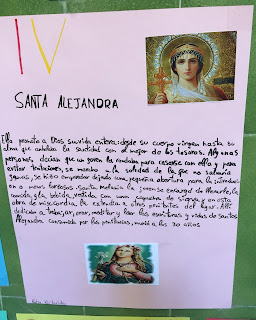 IV
SANTA ALEJANDRA
Ella prometió a Dios su vida entera: desde su cuerpo virgen hasta su
alma que anhelaba la santidad con el mejor de los tesoros. Algunas
personas, decían que un joven la rondaba para casarse con ella y para
evitar tentaciones, se marchó a la soledad de la que no saldría
jamás, se hizo emparedar dejando una pequeña abertura para la introducción
a manos Santa Melania la joven se encargó de llevarle, la
comida y la bebida, vestida con una y en esta
obra de misericordia la extendía a otros pobres del lugar. Allí
dedicada a trabajar, orar, meditar y leer las escrituras y vidas de santos
Alejandra consumida por las penitencias, murió a los 30 años